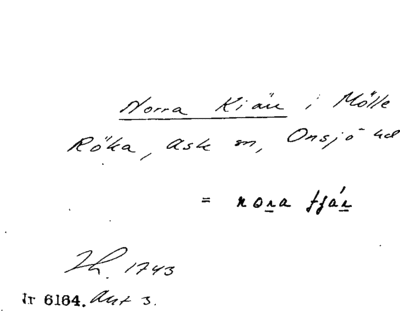 Norra Kiäu i Mölle
Röka, Ask sn, Onsjö hd
= nora fjáṉ
Lh. 1743
Nr 6164. Art 3.